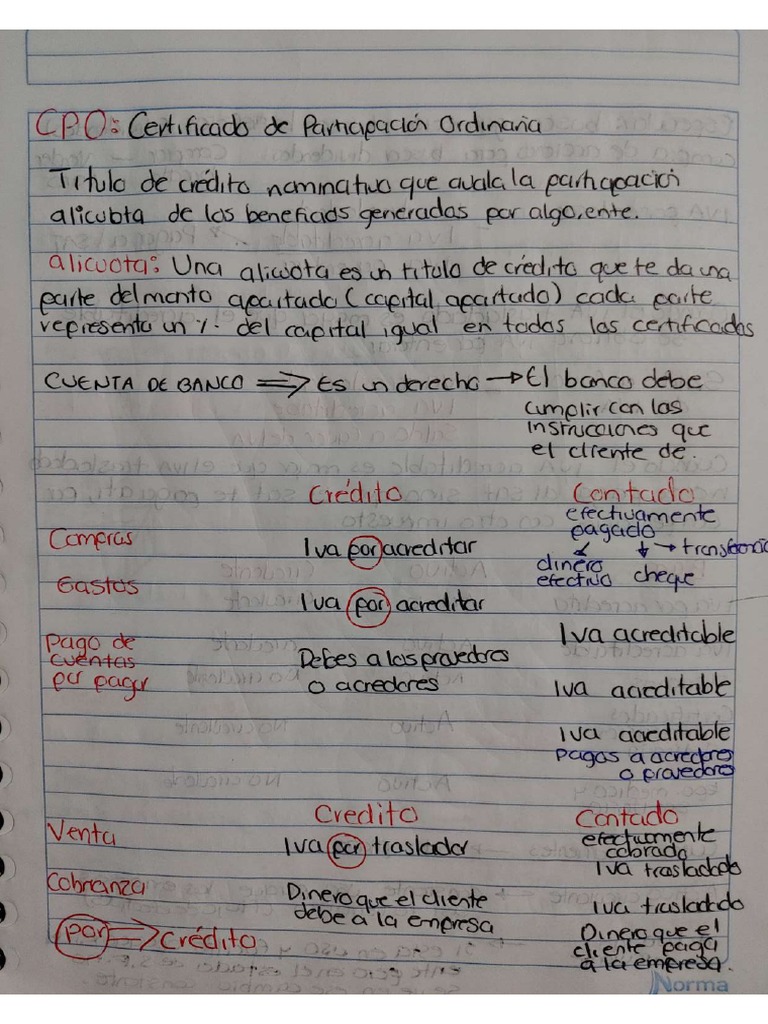 CPO: Certificado de Participación Ordinaria
Titulo de crédito nominativo que avala la participación
alicubta de los beneficios generados por algo, ente.
alicuota: Una alicuota es un titulo de crédito que te da una
parte del monto apartado (capital apartado) cada parte
representa un %. del capital igual en todos los certificados
CUENTA DE BANCO ⟹ Es un derecho → El banco debe
cumplir con las
instrucciones que
el cliente de.
Crédito Contado
efectivamente
pagado
Compras Iva por acreditar → transferencia
dinero
efectivo cheque
Gastos Iva por acreditar
Iva acreditable
Pago de
cuentas
por pagar
Debes a los provedores
o acredores
Iva acreditable
Iva acreditable
pagas a acredero
o provedoro
Credito Contado
Venta Iva por trasladar efectuamente
cobrado
Iva trasladado
Cobranza Dinero que el cliente
debe a la empresa
Iva trasladado
por ⟹ Crédito
Dinero que el
cliente paga
a la empresa.
Norma